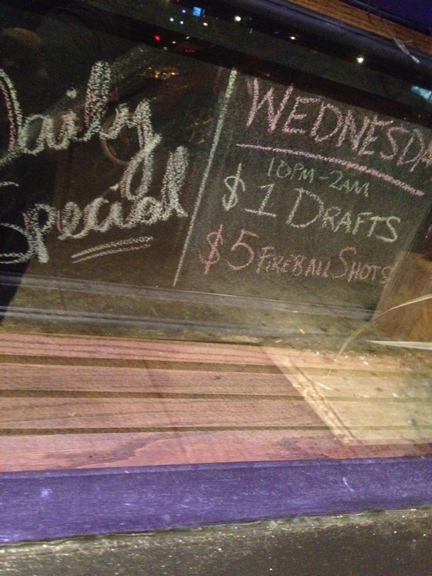 Daily
Special
WEDNESDA
10PM-2AM
$1 DRAFTS
$5 FIREBALL SHOTS